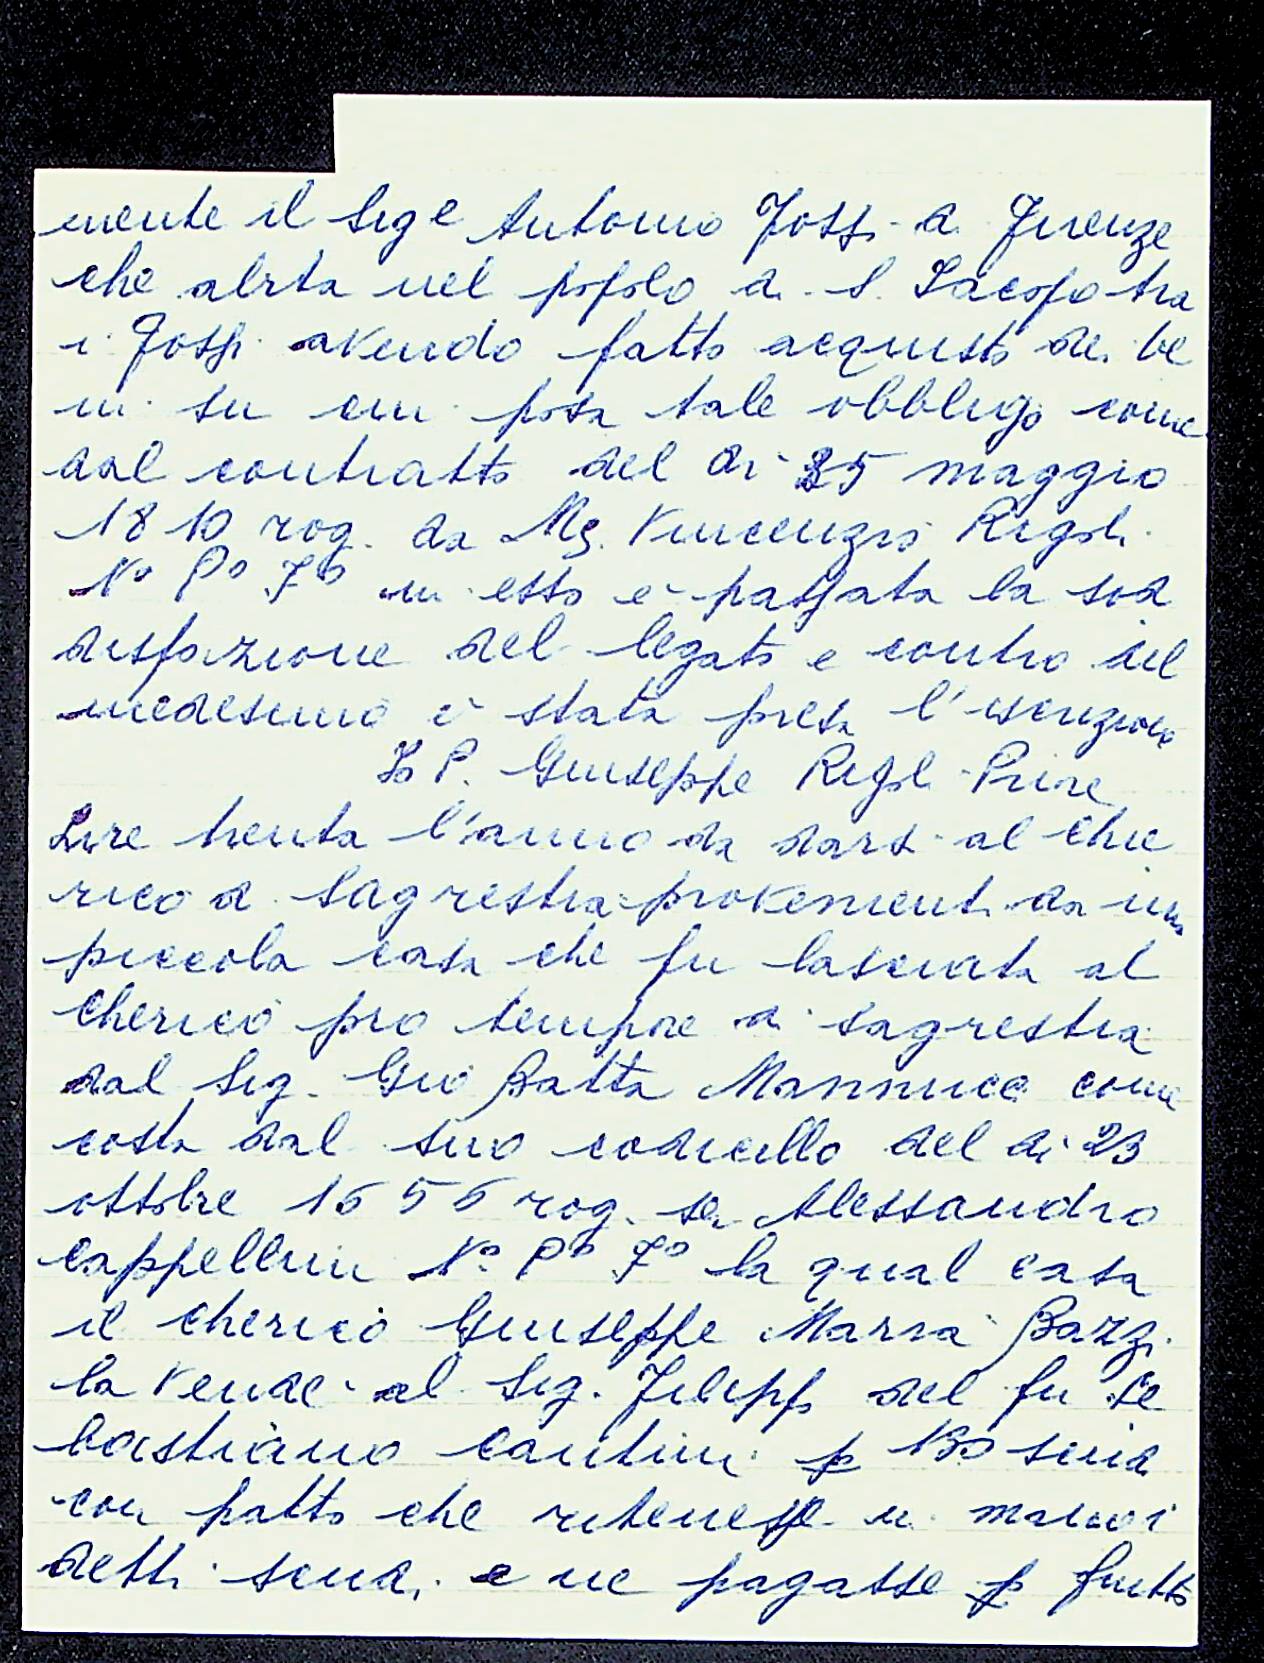 mente il Sig.e Antonio Fossi di Firenze
che abita nel popolo di S. Iacopo tra
i Fossi avendo fatto acquisto dei be
ni su cui posa tale obbligo come
dal contratto del dì 25 maggio
1810 rog. da Mg. Vincenzio Rigoli
No Po Fo in esso è passata la sod
disfazione del legato e contro del
medesimo è stata presa l'iscrizione
Io P. Giuseppe Rigoli Priore
Lire trenta l'anno da darsi al Chie
rico di Sagrestia provenienti da una
piccola casa che fu lasciata al
Cherico pro tempore di sagrestia
dal Sig. Gio Batta Mannucci come
costa dal suo codicillo del dì 23
ottobre 1656 rog. ser Alessandro
Cappellini No Po Fo la qual casa
il cherico Giuseppe Maria Bazzi
la vendé al Sig. Filippo del fu Se
bastiano Cantini p 130 scudi
con patto che ritenesse in mano i
detti scudi e ne pagasse p frutto